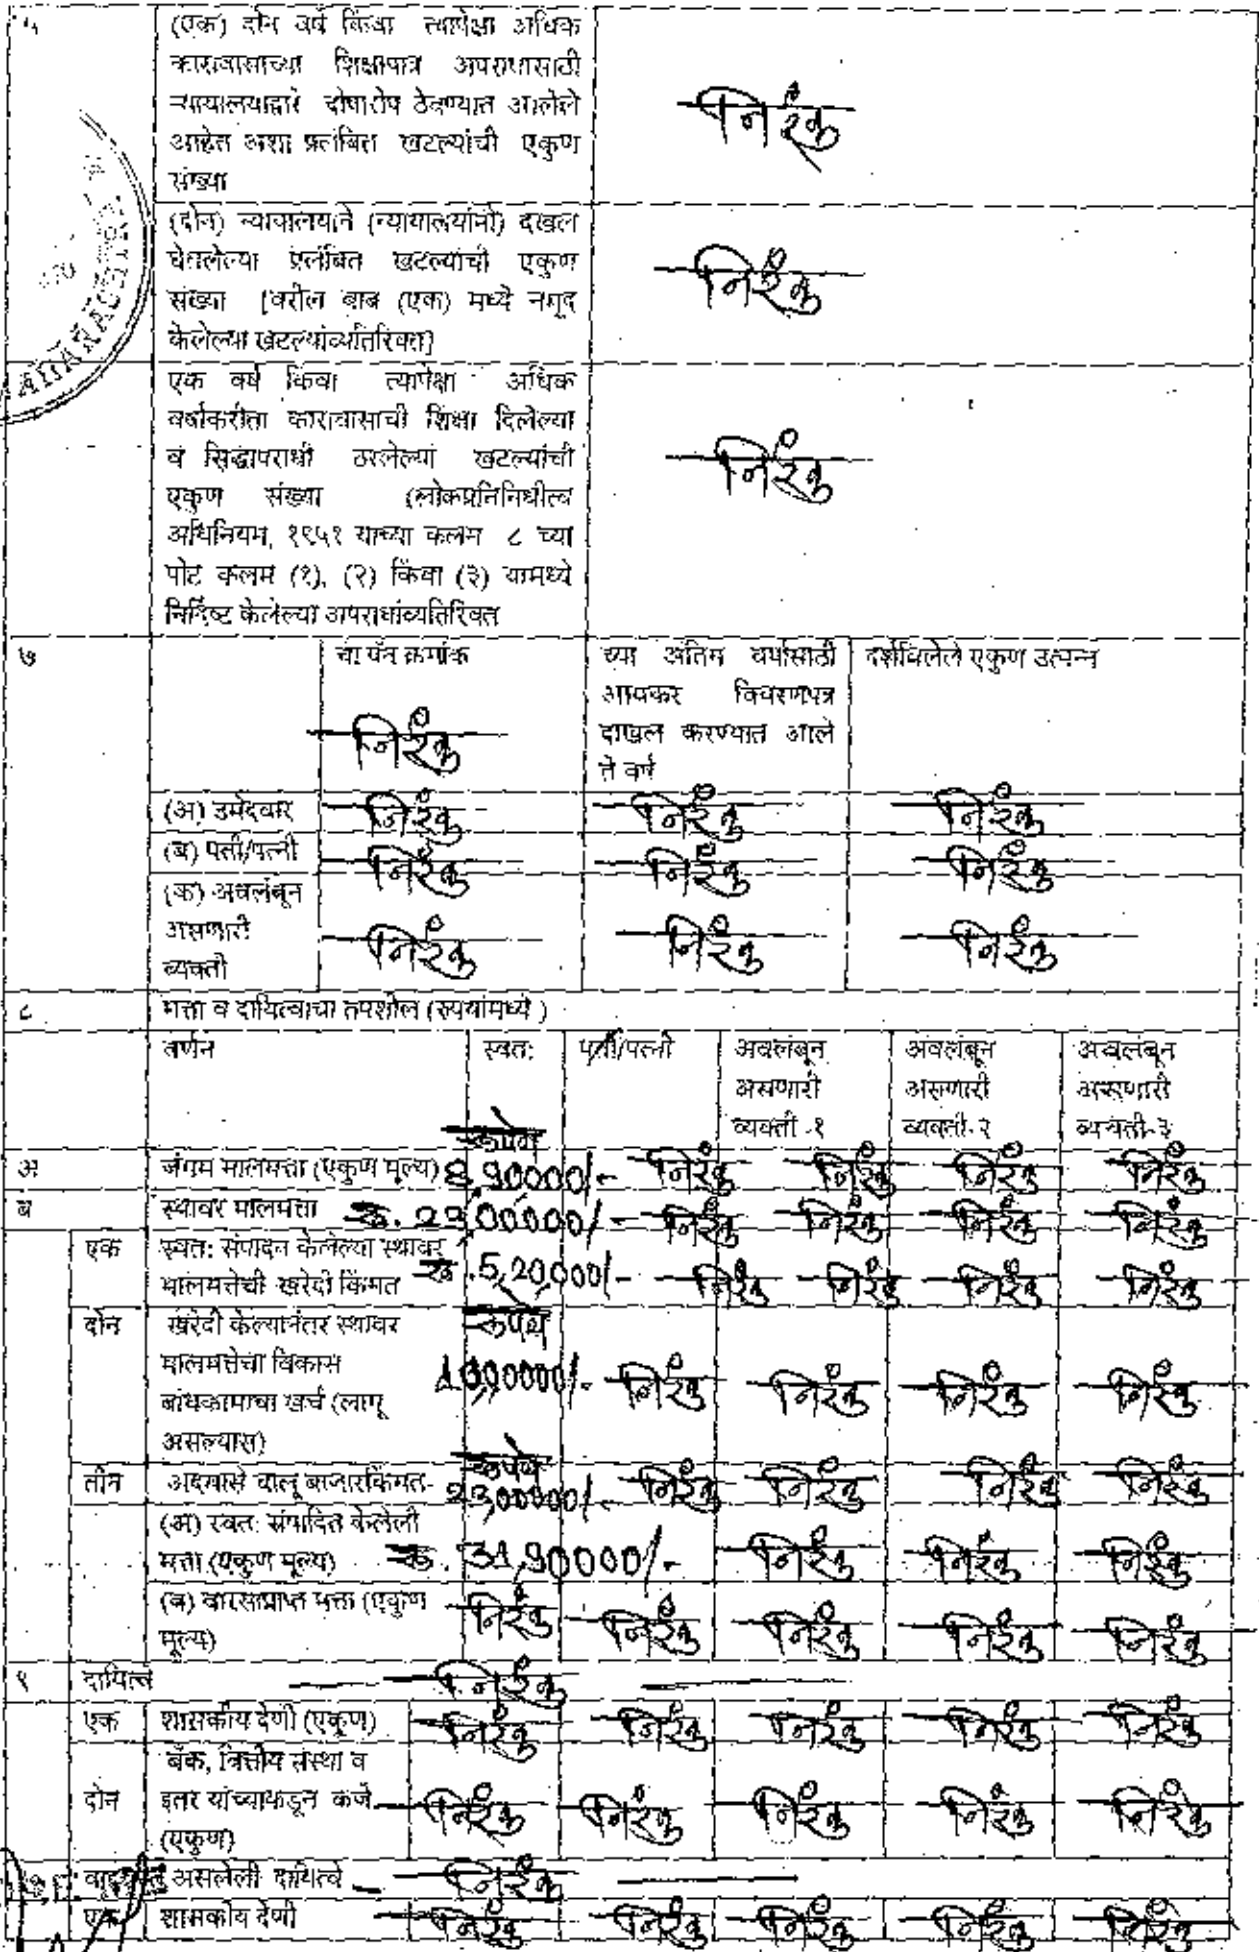 ५
(एक) दोन वर्ष किंवा त्यापेक्षा अधिक
कारावासाच्या शिक्षापात्र अपराधासाठी
न्यायालयाद्वारे दोषारोप ठेवण्यात आलेले
आहेत अशा प्रलंबित खटल्यांची एकुण
संख्या
निरंक
(दोन) न्यायालयाने (न्यायालयांनी) दखल
घेतलेल्या प्रलंबित खटल्यांची एकुण
संख्या [वरील बाब (एक) मध्ये नमूद
केलेल्या खटल्यांव्यतिरिक्त]
निरंक
एक वर्ष किंवा त्यापेक्षा अधिक
वर्षाकरीता कारावासाची शिक्षा दिलेल्या
व सिद्धापराधी ठरलेल्या खटल्यांची
एकुण संख्या (लोकप्रतिनिधीत्व
अधिनियम, १९५१ याच्या कलम ८ च्या
पोट कलम (१), (२) किंवा (३) यामध्ये
निर्दिष्ट केलेल्या अपराधांव्यतिरिक्त
निरंक
७
चा पॅन क्रमांक
निरंक
च्या अंतिम वर्षासाठी
आयकर विवरणपत्र
दाखल करण्यात आले
ते वर्ष
दर्शविलेले एकुण उत्पन्न
(अ) उमेदवार निरंक निरंक निरंक
(ब) पती/पत्नी निरंक निरंक निरंक
(क) अवलंबून
असणारी
व्यक्ती
निरंक निरंक निरंक
८ मत्ता व दायित्वाचा तपशील (रुपयांमध्ये)
वर्णन स्वत: पती/पत्नी
अवलंबून
असणारी
व्यक्ती -१
अवलंबून
असणारी
व्यक्ती-२
अवलंबून
असणारी
व्यक्ती-३
रुपये
अ जंगम मालमत्ता (एकुण मूल्य) 8,90000/- निरंक निरंक निरंक निरंक
ब स्थावर मालमत्ता रु. 23,00000/- निरंक निरंक निरंक निरंक
एक स्वत: संपादन केलेल्या स्थावर
मालमत्तेची खरेदी किंमत रु. 5,20,000/- निरंक निरंक निरंक निरंक
दोन खरेदी केल्यानंतर स्थावर रुपये
मालमत्तेचा विकास
बांधकामाचा खर्च (लागू 10,00000/- निरंक निरंक निरंक निरंक
असल्यास)
रुपये
तीन अदमासे चालू बाजारकिंमत- 23,00000/- निरंक निरंक निरंक निरंक
(अ) स्वत: संपादित केलेली
मत्ता (एकुण मूल्य) रु. 31,90000/- निरंक निरंक निरंक
(ब) वारसाप्राप्त मत्ता (एकुण निरंक निरंक निरंक निरंक निरंक
मूल्य)
९ दायित्वे निरंक
एक शासकीय देणी (एकुण) निरंक निरंक निरंक निरंक निरंक
बँक, वित्तीय संस्था व
दोन इतर यांच्याकडून कर्ज निरंक निरंक निरंक निरंक निरंक
(एकुण)
असलेली दायित्वे निरंक
एक शासकीय देणी निरंक निरंक निरंक निरंक निरंक